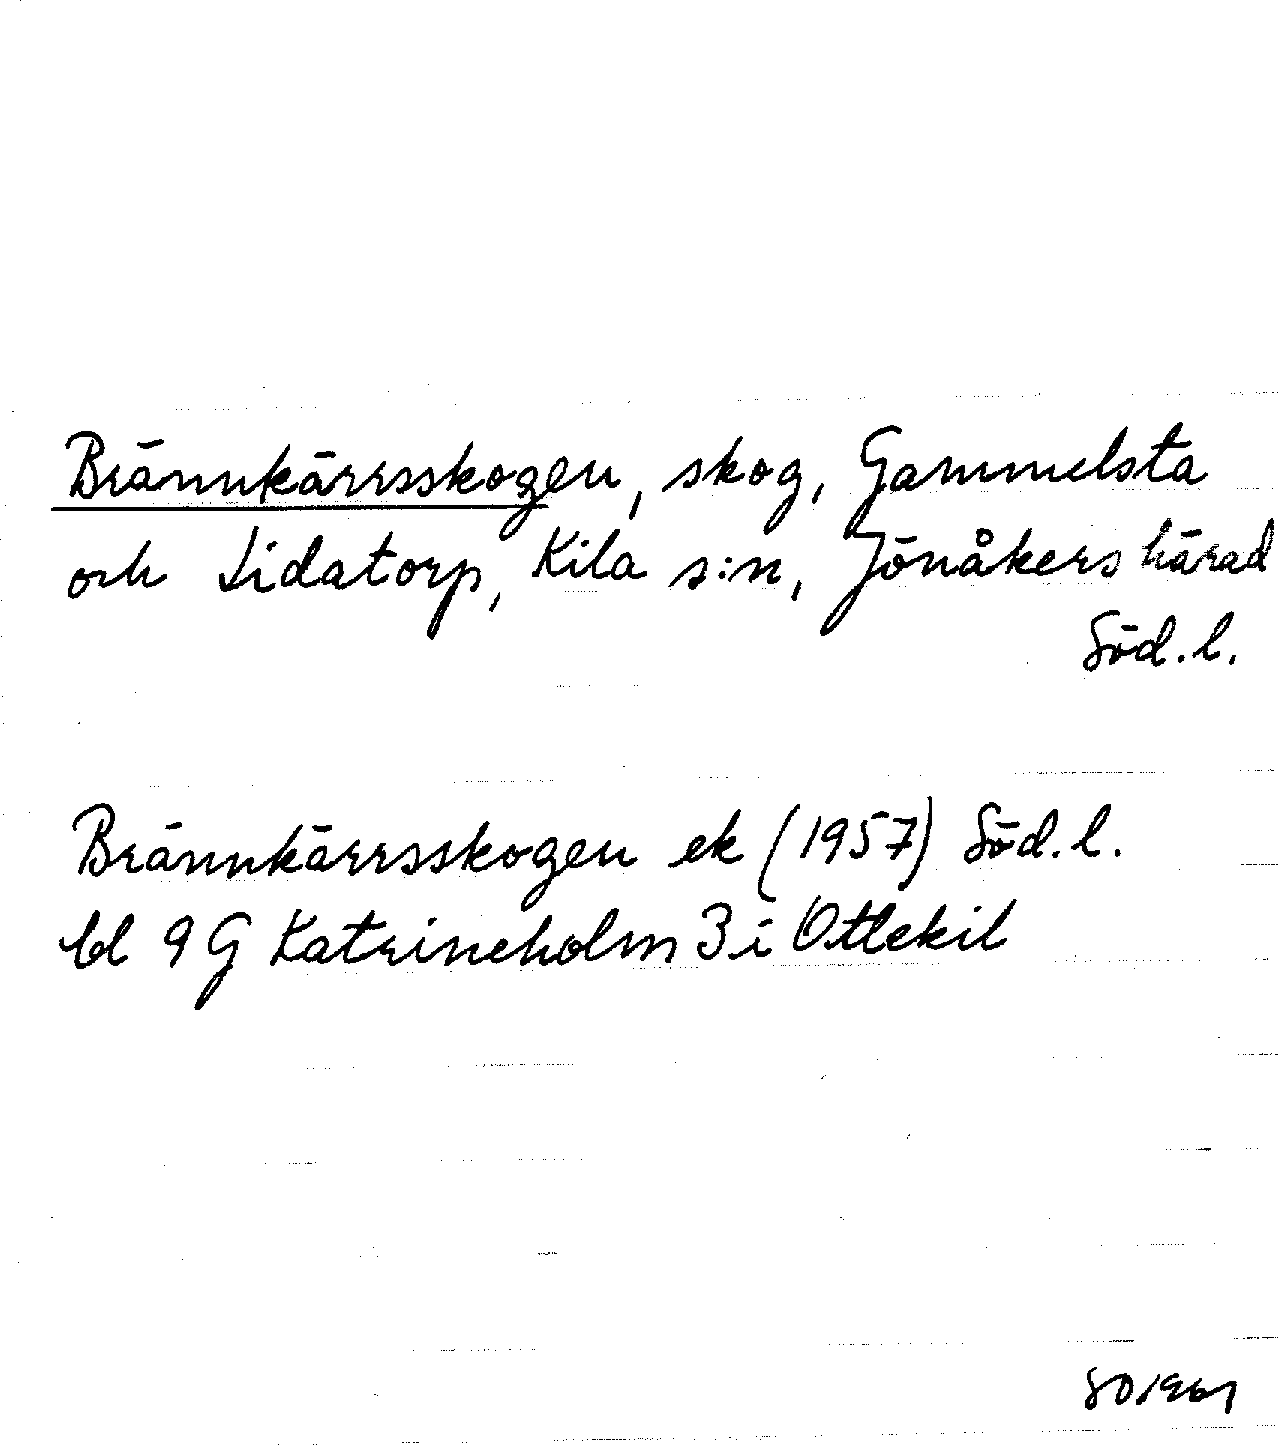 Brännkärrsskogen, skog, Gammelsta
och Lidatorp, Kila s:n, Jönåkers härad
Söd. l.
Brännkärrsskogen ek (1957) Söd. l.
bl 9 G Katrineholm 3 i Ottekil
SO 1967